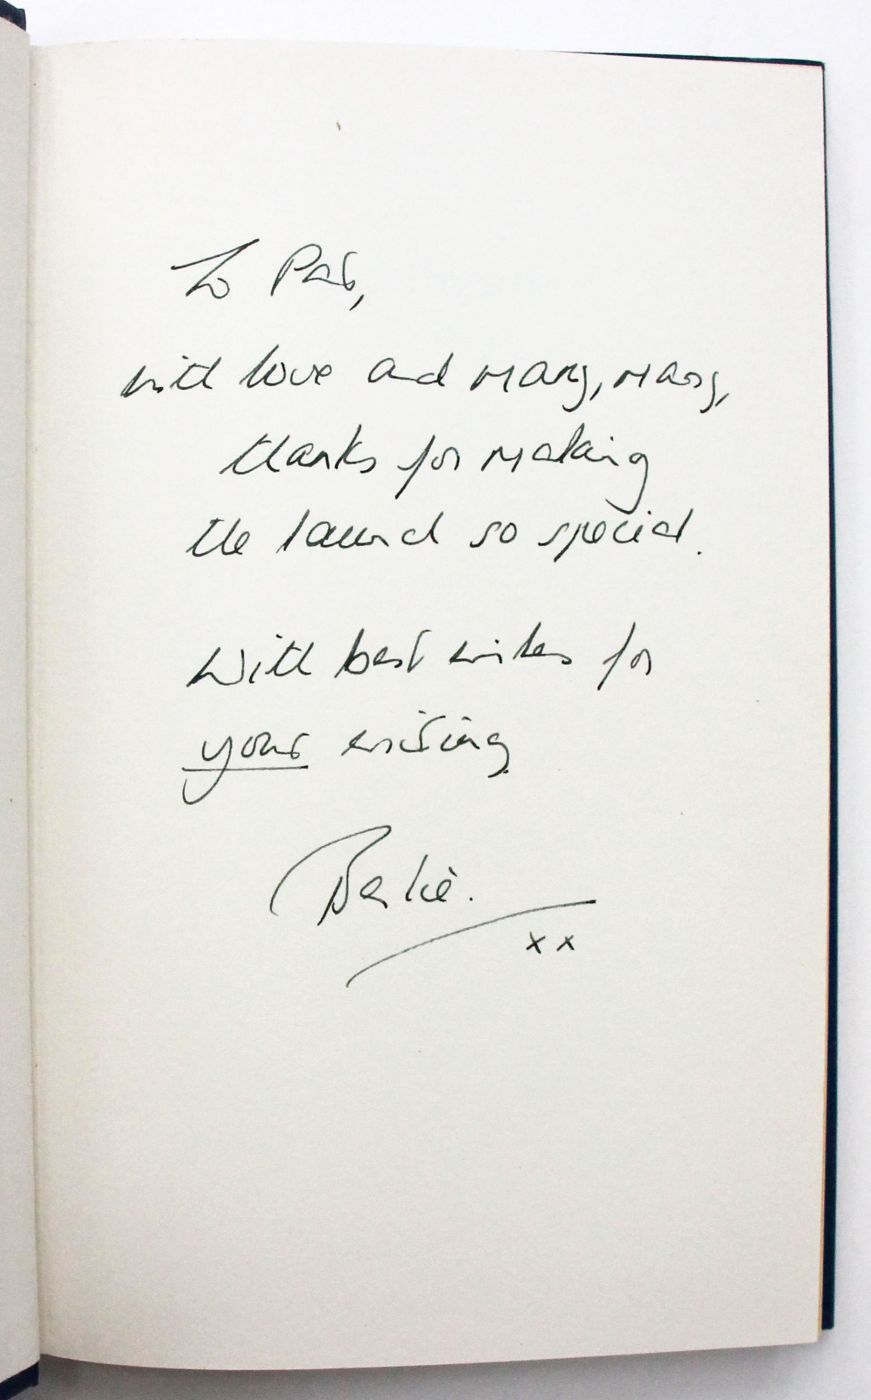 To Pat,
with love and many, many,
thanks for making
the launch so special.
With best wishes for
your writing
xx